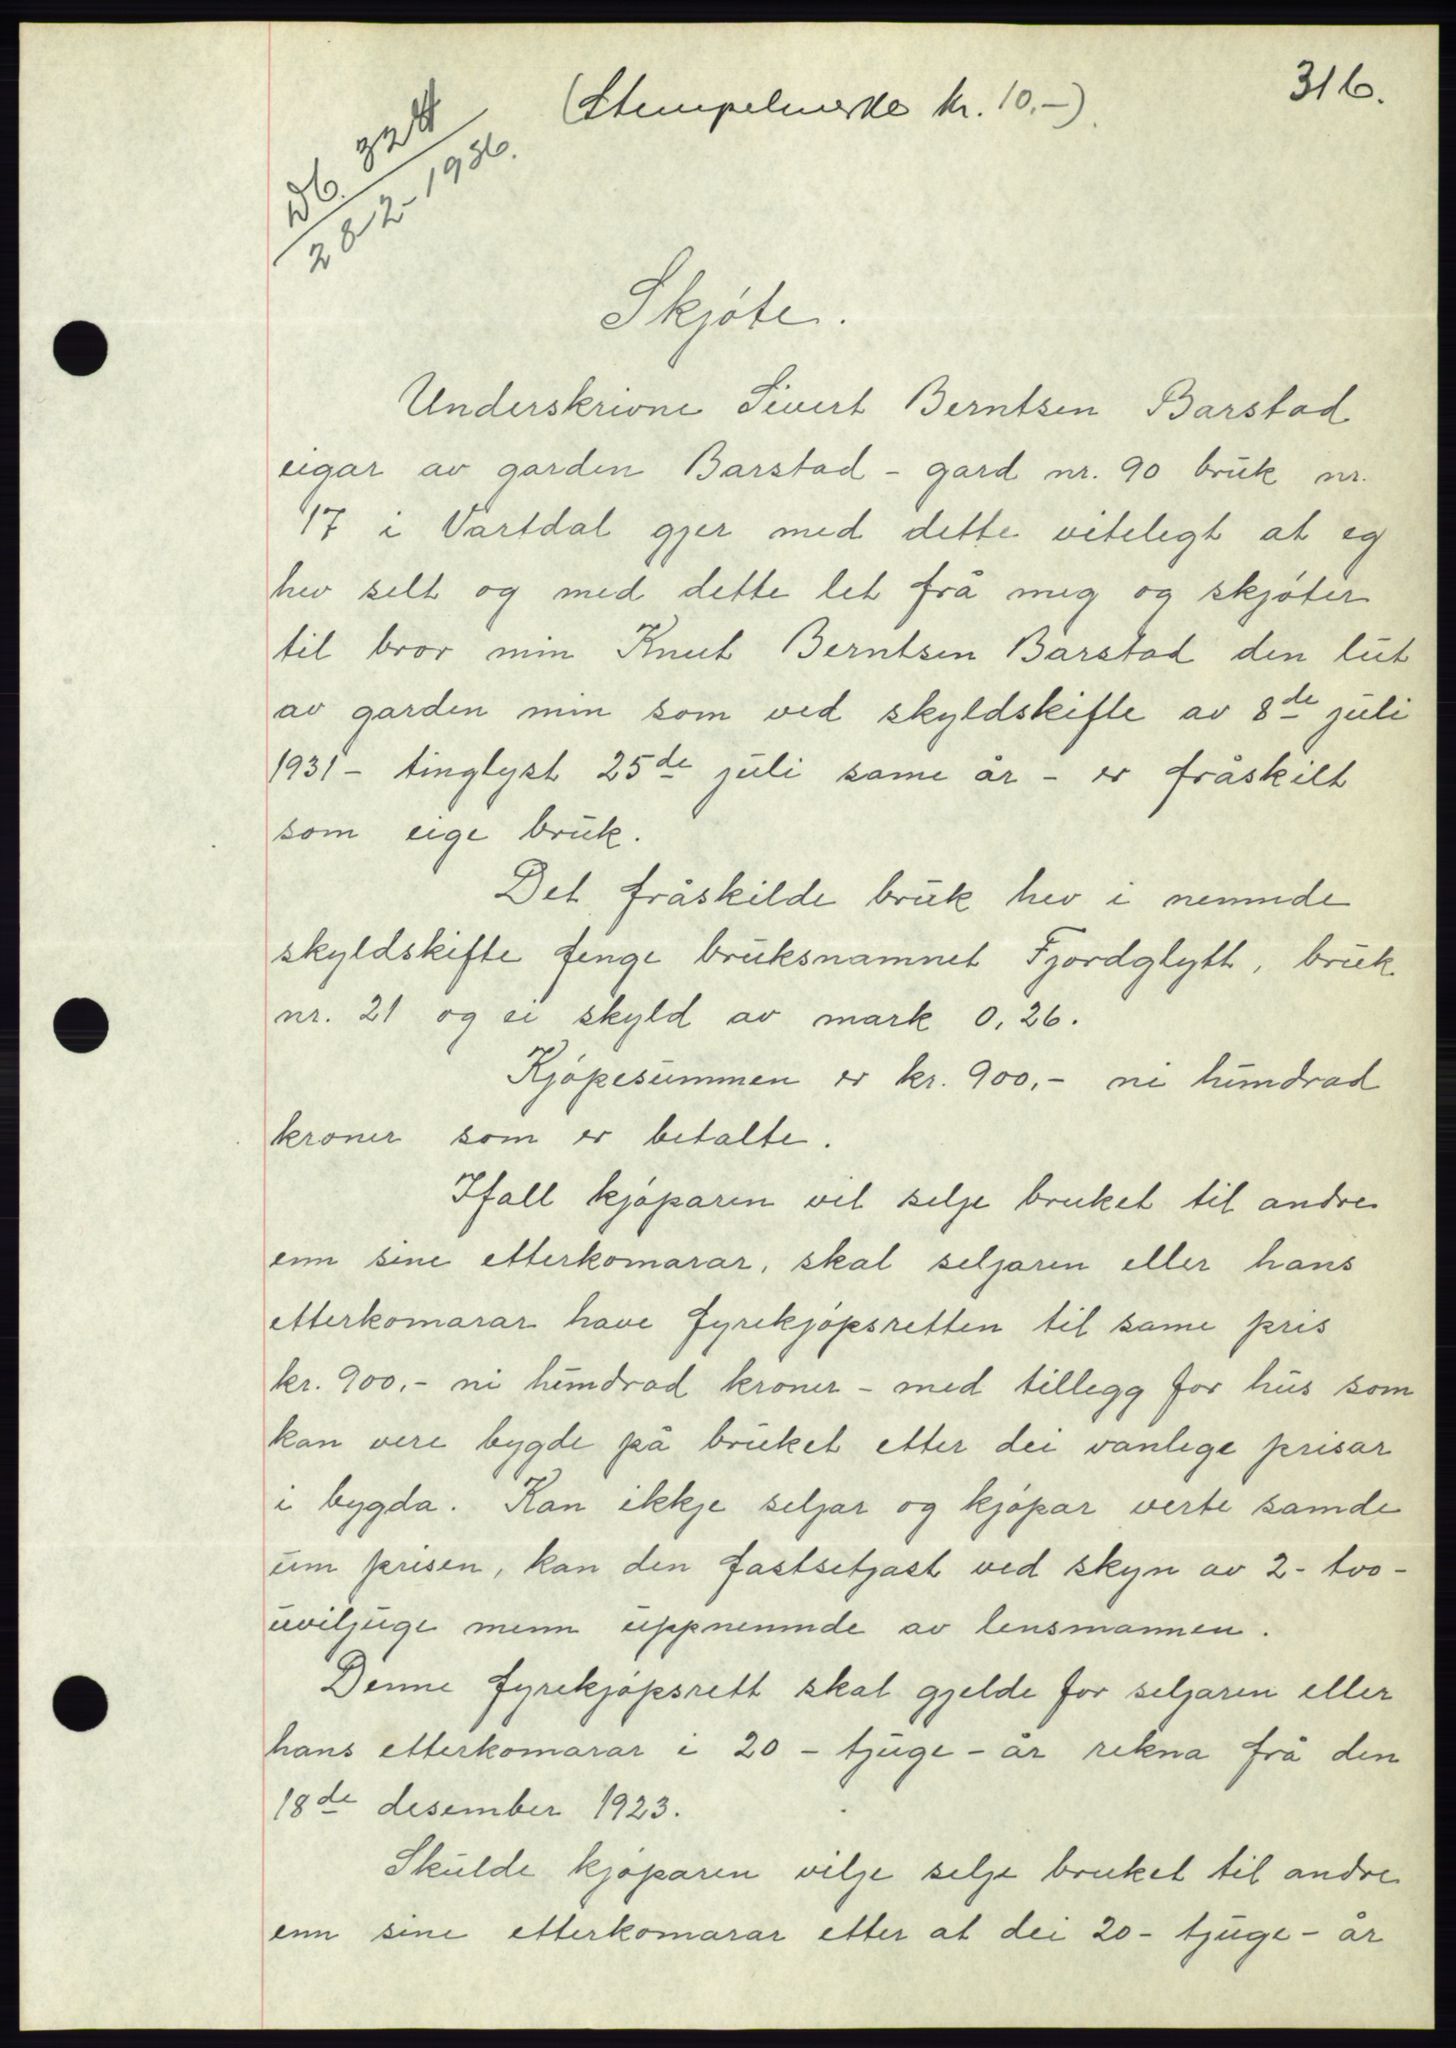 316.
(Stempelmerke kr. 10.-)
Db. 324
28-2-1936.
Skjóte.
Underskrivne Sivert Berntsen Barstad
eigar av garden Barstad - gard nr. 90 bruk nr.
17 i Vartdal gjer med dette vitelegt at eg
hev selt og med dette let frå meg og skjóter
til bror min Knut Berntsen Barstad den lut
av garden min som ved skyldskifte av 8de juli
1931 - tinglyst 25de juli same år - er fråskilt
som eige bruk.
Det fråskilde bruk hev i nemnde
skyldskifte fenge bruksnamnet Fjordglytt, bruk
nr. 21 og ei skyld av mark 0,26.
Kjópesummen er kr. 900,- ni hundrad
kroner som er betalte.
Ifall kjóparen vil selje bruket til andre
enn sine etterkomarar, skal seljaren eller hans
etterkomarar have fyrekjópsretten til same pris
kr. 900,- ni hundrad kroner - med tillegg for hus som
kan vere bygde på bruket etter dei vanlege prisar
i bygda. Kan ikkje seljar og kjópar verte samde
um prisen, kan den fastsetjast ved skyn av 2 - tvo -
uviljuge menn uppnemnde av lensmannen.
Denne fyrekjópsrett skal gjelde for seljaren eller
hans etterkomarar i 20 - tjuge - år rekna frå den
18de desember 1923.
Skulde kjóparen vilje selje bruket til andre
enn sine etterkomarar etter at dei 20 - tjuge - år